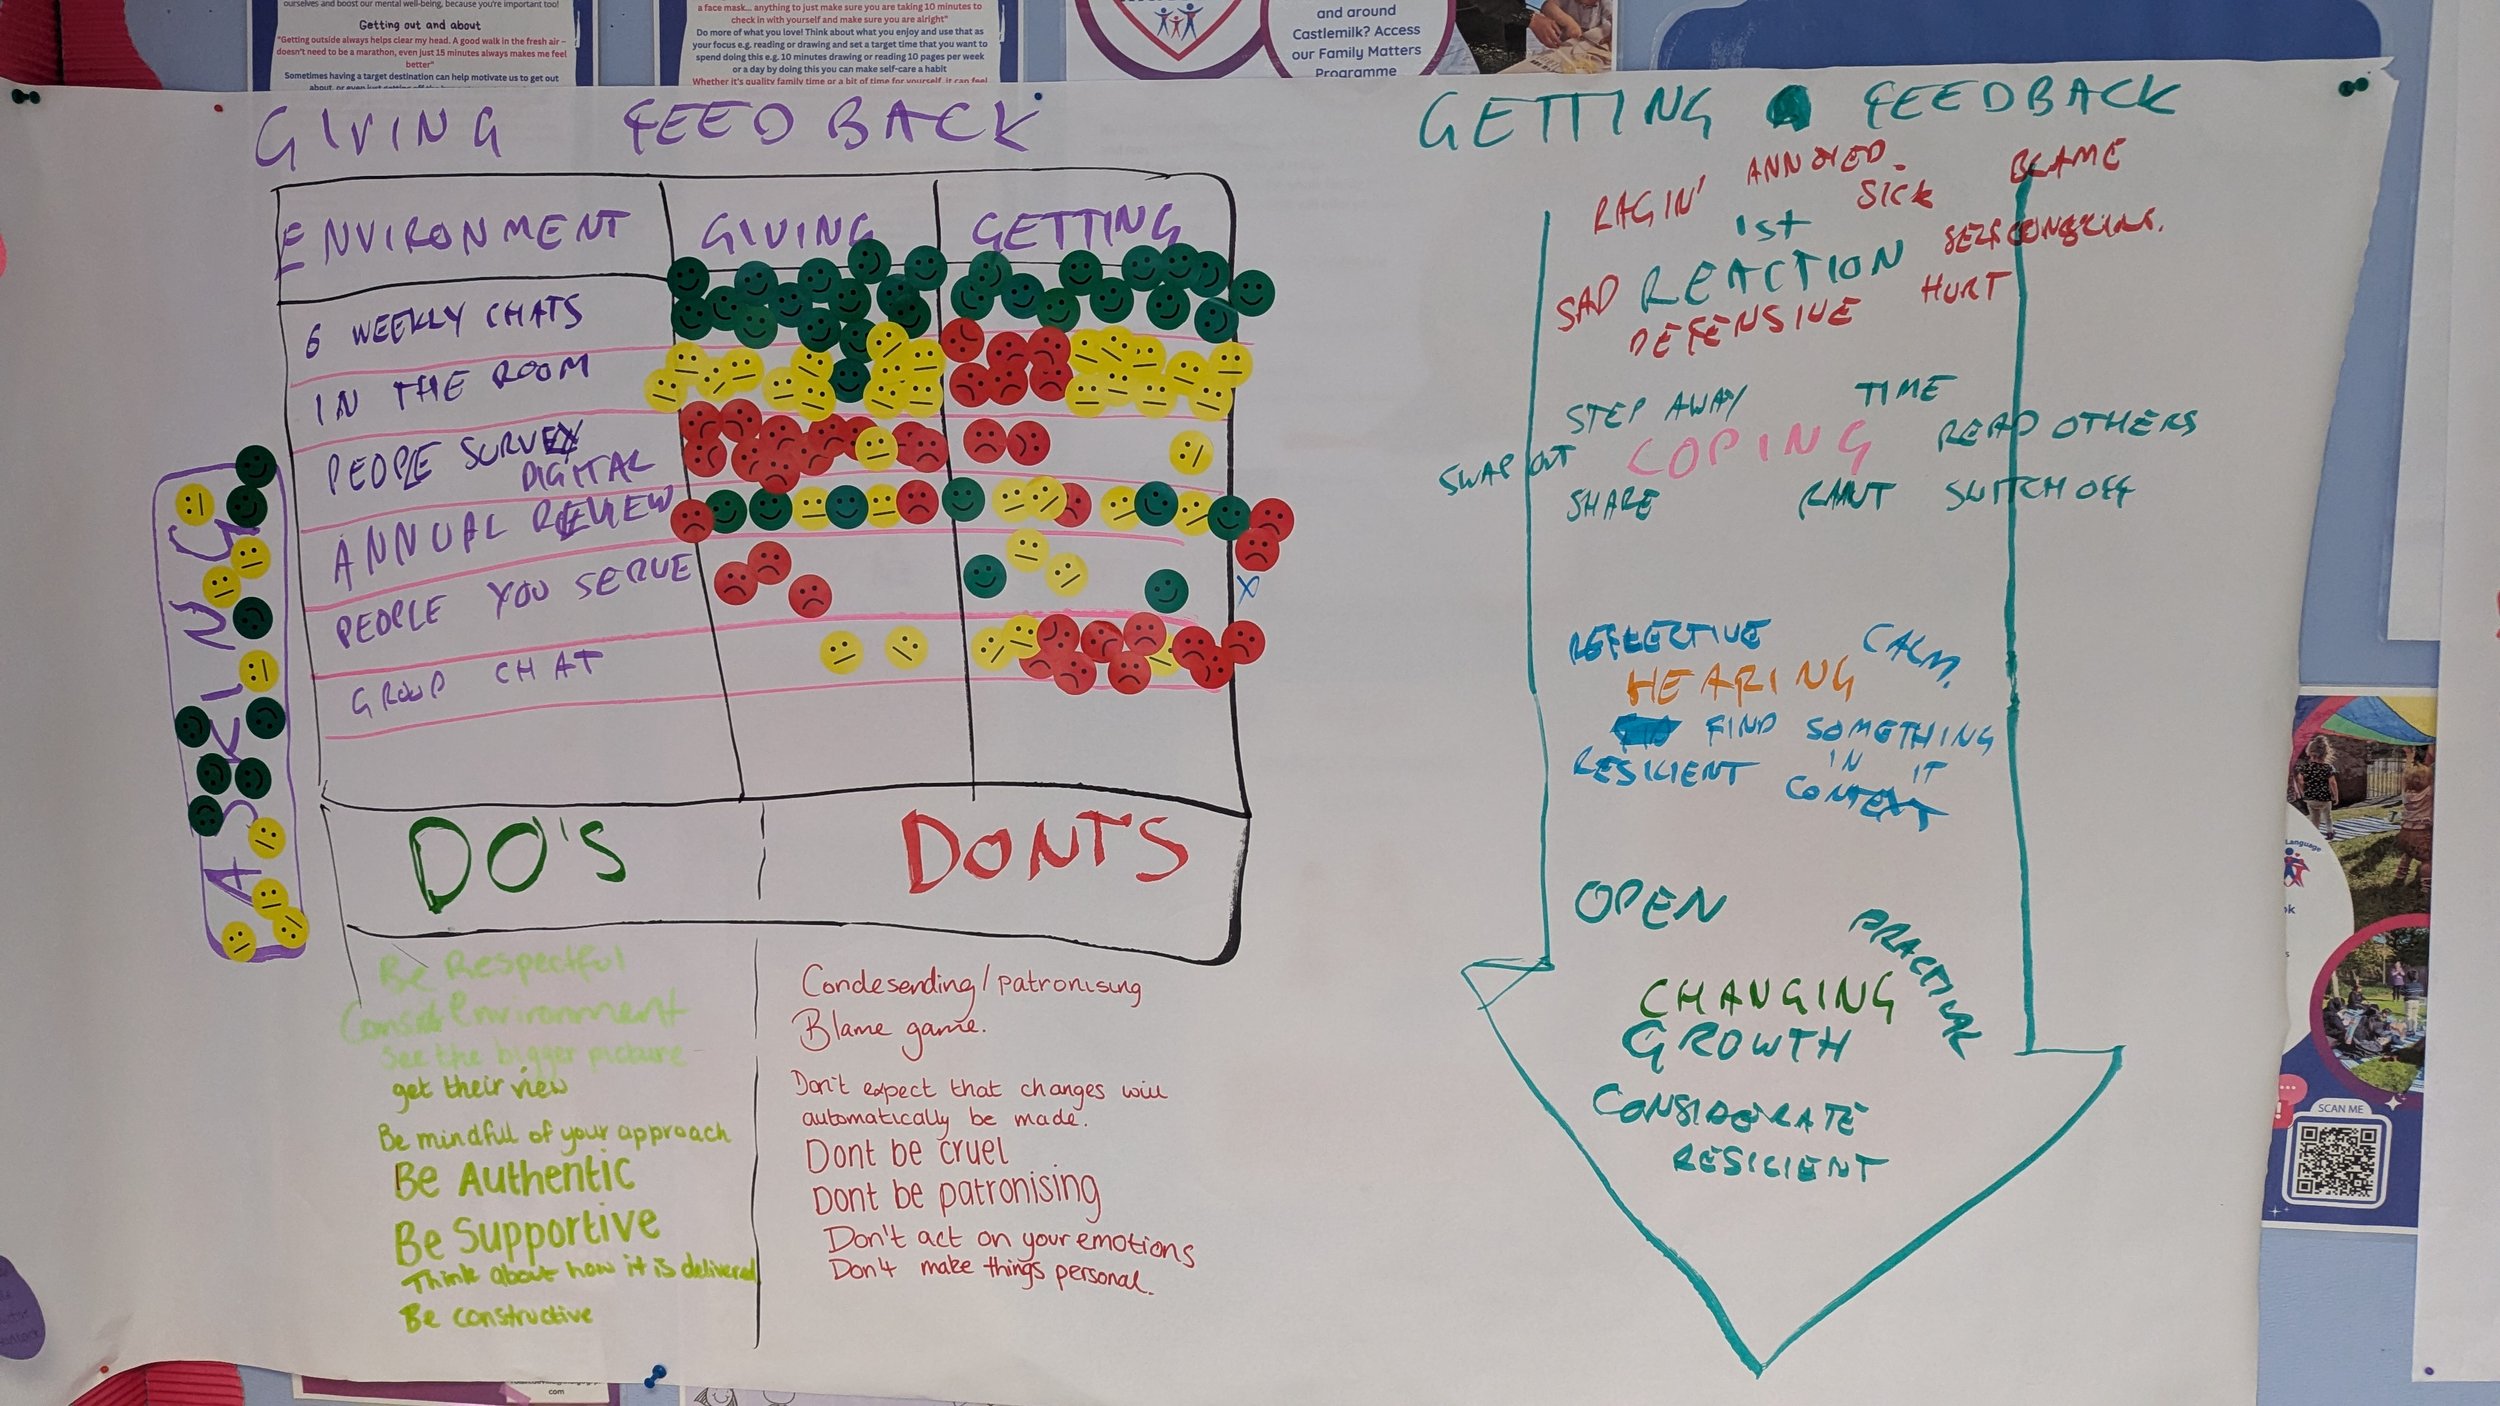 ourselves and boost our mental well-being, because you're important too!
Getting out and about
"Getting outside always helps clear my head. A good walk in the fresh air –
doesn't need to be a marathon, even just 15 minutes always makes me feel
better"
Sometimes having a target destination can help motivate us to get out
a face mask... anything to just make sure you are taking 10 minutes to
check in with yourself and make sure you are alright"
Do more of what you love! Think about what you enjoy and use that as
your focus e.g. reading or drawing and set a target time that you want to
spend doing this e.g. 10 minutes drawing or reading 10 pages per week
or a day by doing this you can make self-care a habit
Whether it's quality family time or a bit of time for yourself, it can feel
and around
Castlemilk? Access
our Family Matters
Programme
GIVING FEEDBACK
ENVIRONMENT GIVING GETTING
6 WEEKLY CHATS
IN THE ROOM
PEOPLE SURVEY
DIGITAL
ANNUAL REVIEW
PEOPLE YOU SERVE
X
GROUP CHAT
ASKING
DO'S DONT'S
Be Respectful
Consid environment
See the bigger picture
get their view
Be mindful of your approach
Be Authentic
Be Supportive
Think about how it is delivered
Be constructive
Condesending/patronising
Blame game.
Don't expect that changes will
automatically be made.
Dont be cruel
Dont be patronising
Don't act on your emotions
Don't make things personal.
GETTING FEEDBACK
RAGIN' ANNOYED. SICK BLAME
1st
REACTION
SAD DEFENSIVE HURT
STEP AWAY TIME
COPING READ OTHERS
SWAP OUT
SHARE RANT SWITCH OFF
REFLECTIVE CALM.
HEARING
FIND SOMETHING
IN IT
RESILIENT CONTEXT
OPEN PRACTICAL
CHANGING
GROWTH
CONSIDERATE
RESILIENT
Language
SCAN ME
com